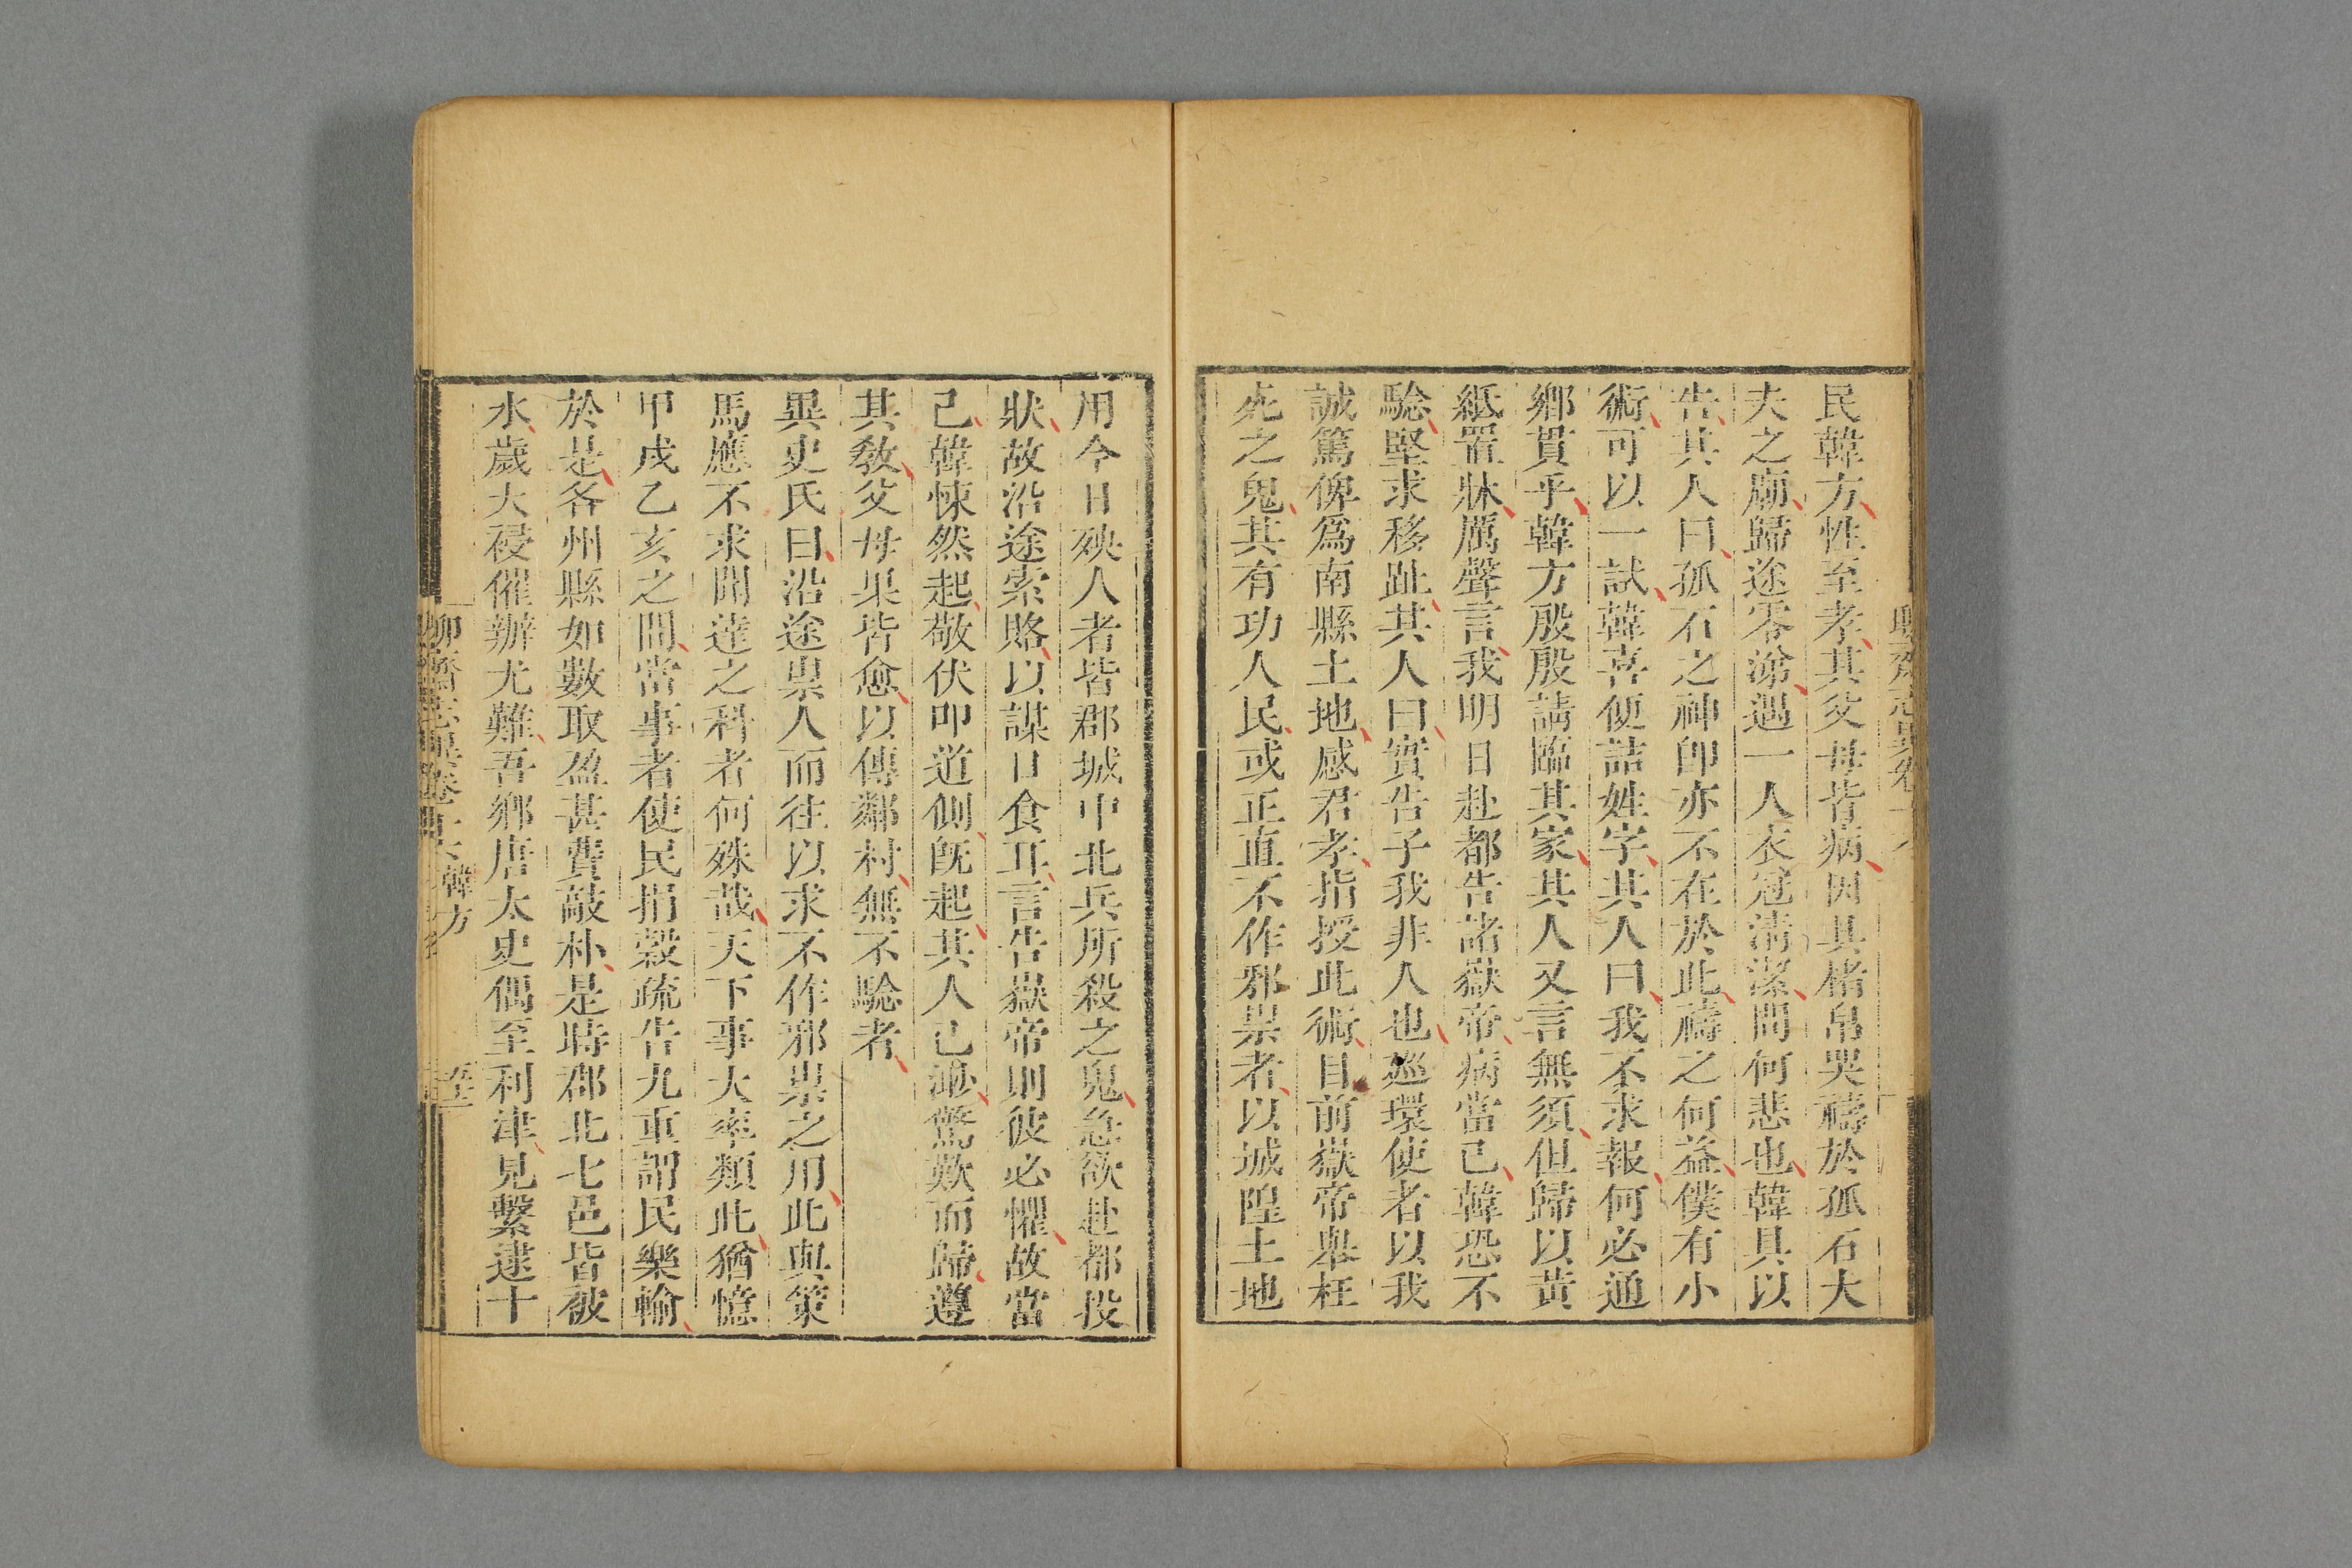 民韓方性至孝其父母皆病因具楮帛哭禱於孤石大
夫之廟歸途零涕遇一人衣冠淸潔問何悲也韓具以
告其人曰孤石之神卽亦不在於此禱之何益僕有小
術可以一試韓喜便詰姓字其人曰我不求報何必通
鄉貫乎韓方殷殷請臨其家其人又言無須但歸以黃
紙置牀厲聲言我明日赴都告諸嶽帝病當已韓恐不
騐堅求移趾其人曰實告子我非人也巡環使者以我
誠篤俾爲南縣土地感君孝指授此術目前嶽帝舉枉
死之鬼其有功人民或正直不作邪祟者以城隍土地
用今日殃人者皆郡城中北兵所殺之鬼急欲赴都投
狀故沿途索賂以謀口食耳言告嶽帝則彼必懼故當
已韓悚然起敬伏叩道側旣起其人已渺驚歎而歸遵
其敎父母果皆愈以傳鄰村無不騐者
異史氏曰沿途祟人而往以求不作邪祟之用此與策
馬應不求聞達之科者何殊哉天下事大率類此猶憶
甲戌乙亥之間當事者使民捐穀疏告九重謂民樂輸
於是各州縣如數取盈甚費敲朴是時郡北七邑皆被
水歲大祲催辦尤難吾鄉唐太史偶至利津見繫逮十
聊齋志異卷十六 韓方